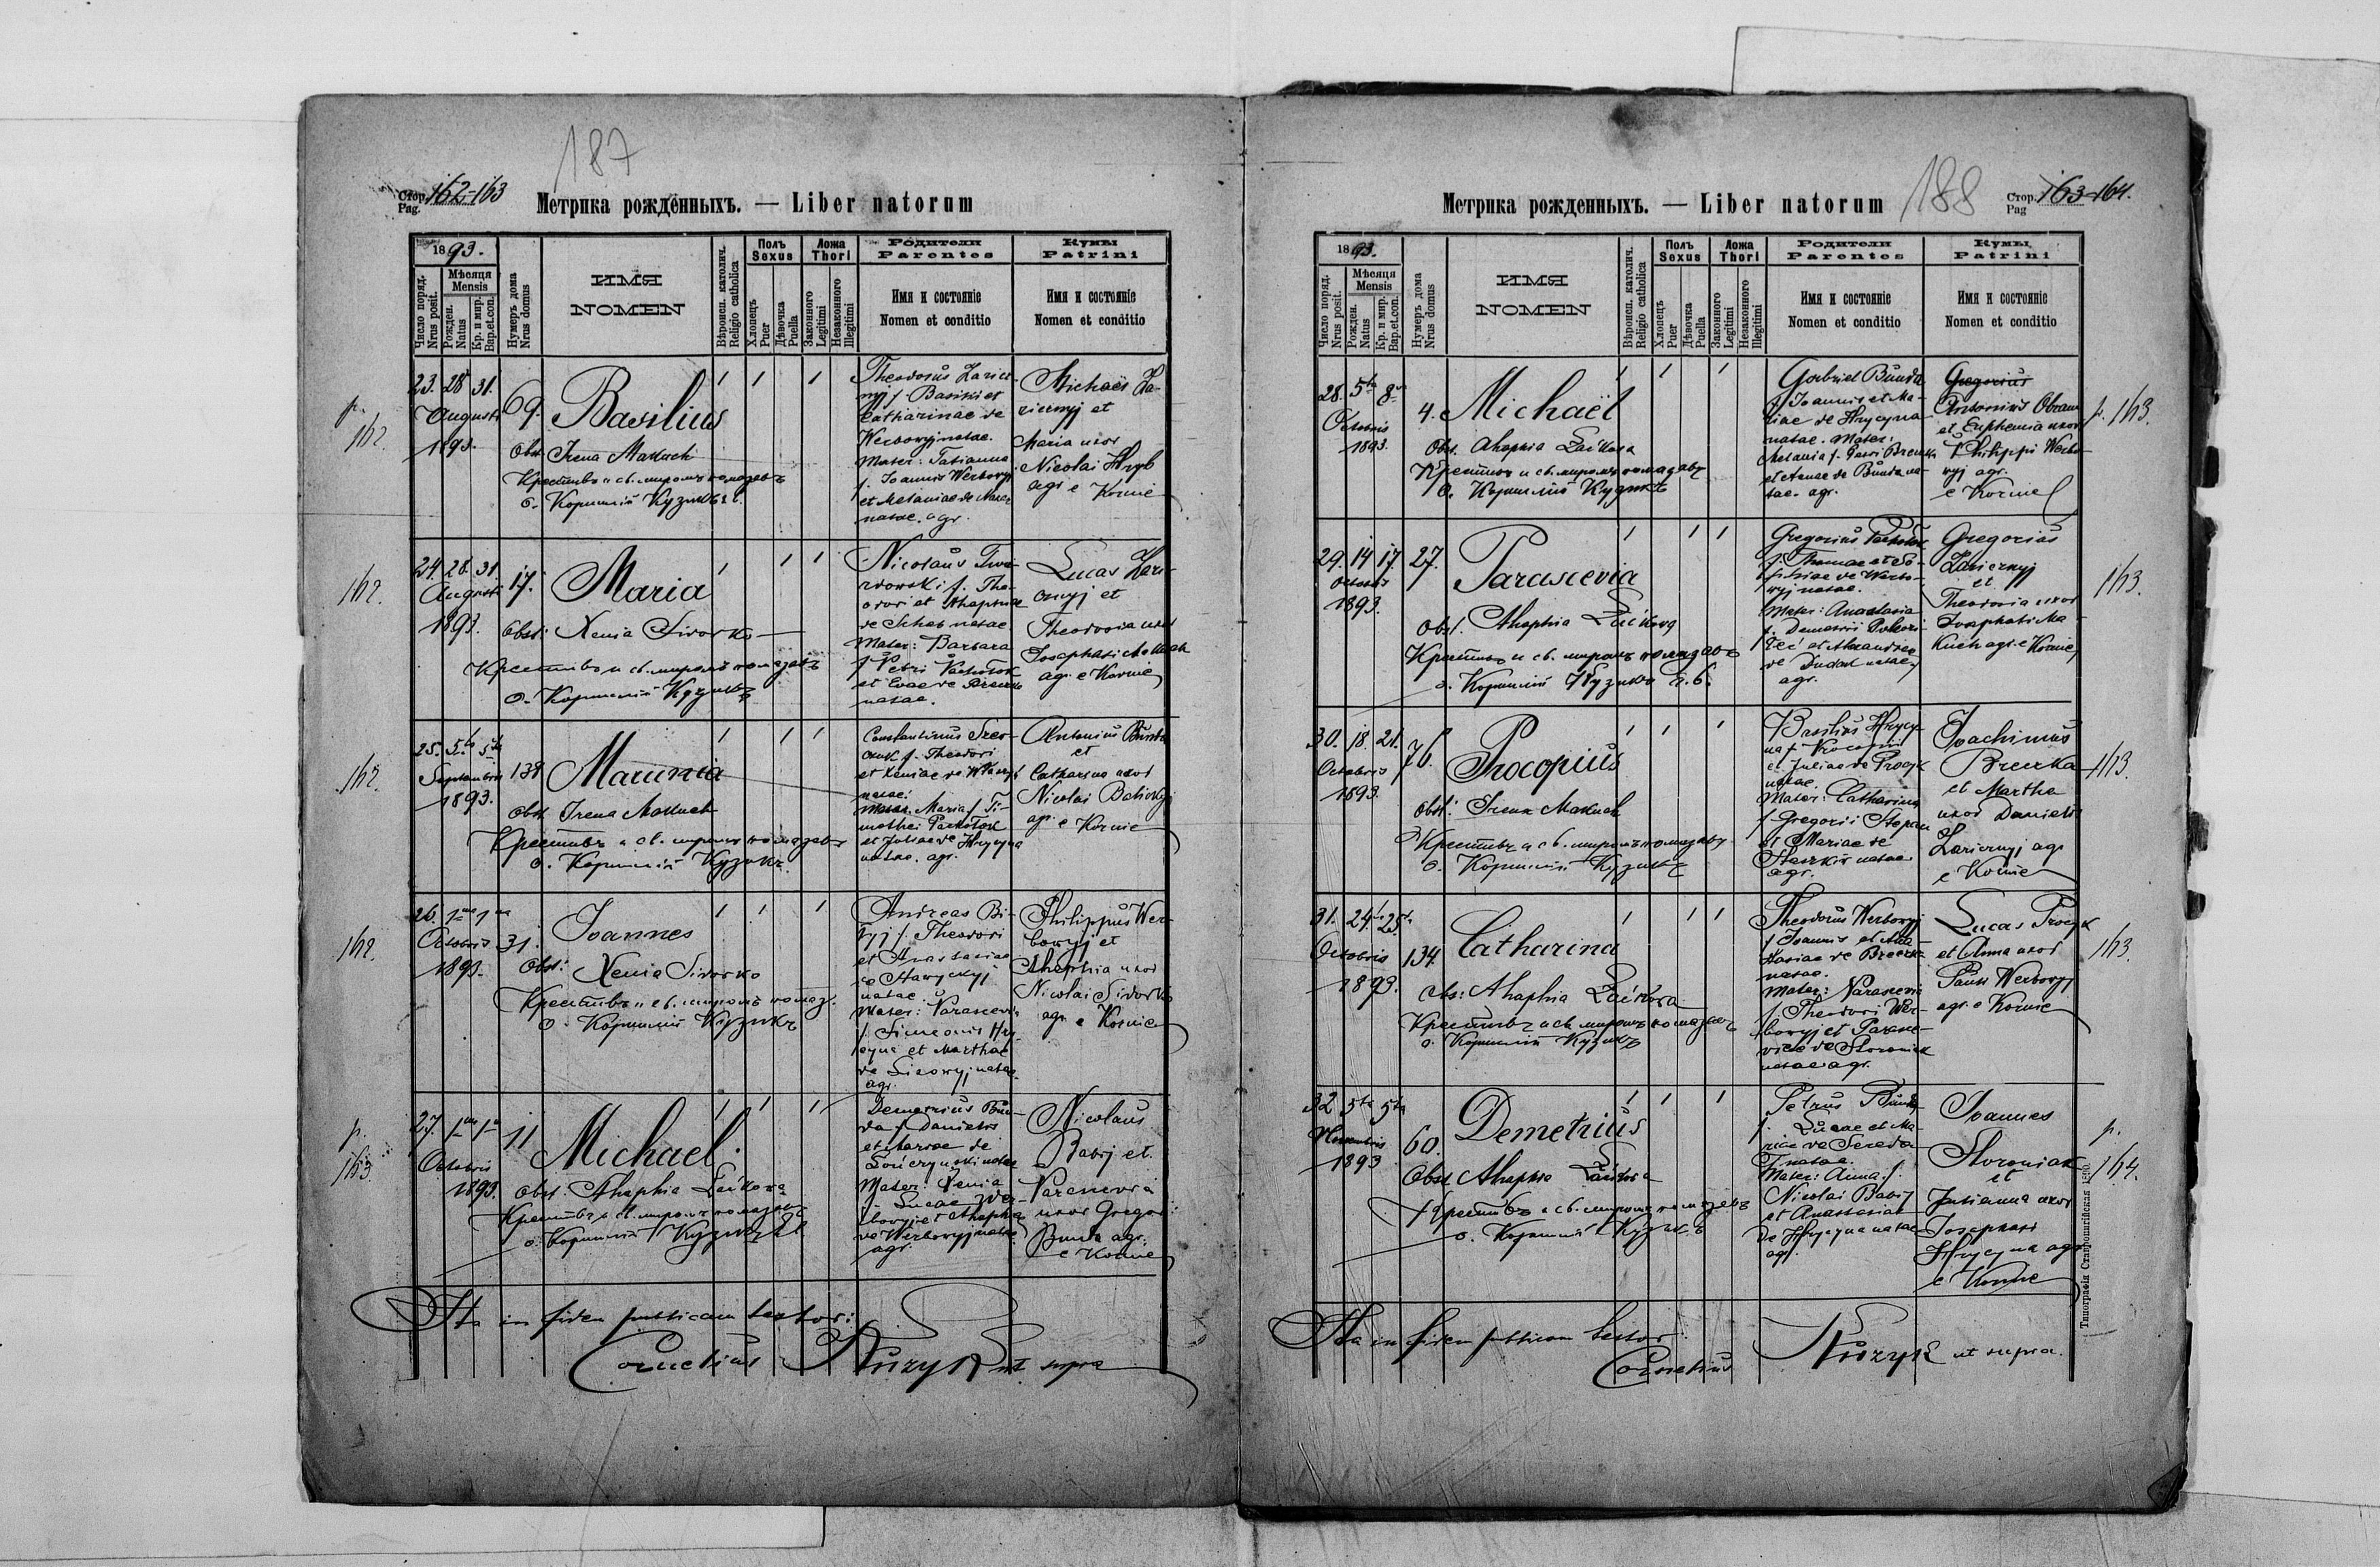 187
Стор. 162-163
Pag.
Метрика рождённыхъ. — Liber natorum
1893.
Число поряд.
Nrus posit.
Мѣсяця
Mensis
Рожден.
Natus
Кр. и мир.
Bap.et.con.
Нумеръ дома
Nrus domus
ИМЯ
NOMEN
Вѣроисп. католич.
Religio catholica
Полъ
Sexus
Хлопецъ
Puer
Дѣвочка
Puella
Ложа
Thori
Законного
Legitimi
Незаконного
Illegitimi
Родители
Parentes
Имя и состояніе
Nomen et conditio
Кумы
Patrini
Имя и состояніе
Nomen et conditio
p. 162
23. 28 31.
Augusti
1893.
69.
Basilius
Obst. Irena Makuch
Крестивъ и св. миромъ помазавъ
о. Корнилій Кузыкъ
Theodorus Zaricz-
nyj f. Basilii et
Catharinae de
Werbowyj natae.
Mater: Tatianna
f. Joannis Werbowyj
et Melaniae de
natae. agr.
Michaël Za-
ricznyj et
Maria uxor
Nicolai Hryb
agr. e Kornie
162.
24. 28. 31
Augusti
1893.
17.
Maria
Obst: Xenia Sidorko
Крестивъ и св. миромъ помазавъ
о. Корнилій Кузыкъ
Nicolaus Twa-
rdowski f. Theo-
dori et Ahaphiae
de natae.
Mater: Barbara
f. Petri Pachołok
et Evae de Breczka
natae.
Lucas
et
Theodosia uxor
Josaphati Makuch
agr. e Kornie
162.
25. 5ta 5ta
Septembris
1893.
138
Marinia
Obst. Irena Makuch
Крестивъ и св. миромъ помазавъ
о. Корнилій Кузыкъ
Constantinus
f. Theodori
et Xeniae de
natae.
Mater. Maria f. Ti-
mothei Pachołok
et Juliae de Hrycyna
natae. agr.
Antonius Bunda
et
Catharina uxor
Nicolai
agr. e Kornie
162.
26. 1ma 1ma
Octobris
1893.
31.
Joannes
Obst: Xenia Sidorko
Крестивъ и св. миромъ помаз.
о. Корнилій Кузыкъ
Andreas Bi-
f. Theodori
et Anastasiae
de Stawyckyj
natae.
Mater: Parascevia
f. Simeonis Hry-
cyna et Marthae
de natae.
agr.
Philippus Wer-
bowyj et
Ahaphia uxor
Nicolai Sidorko
agr. e Kornie
p. 163
27. 1ma 1ma
Octobris
1893.
11
Michael.
Obst: Ahaphia Zaikowa
Крестивъ и св. миромъ помазавъ
о. Корнилій Кузыкъ
Demetrius Bun-
da f. Danielis
et Mariae de
natae
Mater: Xenia
f. Lucae Wer-
bowyj et Ahaphiae
de Werbowyj natae
agr.
Nicolaus
Babij et
Parascevia
uxor Gregorii
Bunda agr.
e Kornie
Ita in fidem publicam testor:
Cornelius Kuzyk ut supra
188
Стор. 163-164.
Pag
Метрика рожденныхъ. — Liber natorum
1893.
Число поряд.
Nrus posit.
Мѣсяця
Mensis
Рожден.
Natus
Кр. и мир.
Bap.et.con.
Нумеръ дома
Nrus domus
ИМЯ
NOMEN
Вѣроисп. католич.
Religio catholica
Полъ
Sexus
Хлопецъ
Puer
Дѣвочка
Puella
Ложа
Thori
Законного
Legitimi
Незаконного
Illegitimi
Родители
Parentes
Имя и состояніе
Nomen et conditio
Кумы
Patrini
Имя и состояніе
Nomen et conditio
28. 5ta 8va
Octobris
1893.
4.
Michaël
Obst. Ahaphia Zaikowa
Крестивъ и св. миромъ помазавъ
о. Корнилій Кузыкъ
Gabriel Bunda
f. Joannis et Ma-
riae de Hrycyna
natae. Mater:
Melania f. Pauli Breczka
et Annae de Bunda na-
tae. agr.
Gregorius
Antonius
et Euphemia uxor
Philippi Werbo-
wyj agr.
e Kornie
p. 163.
29. 14 17.
Octobris
1893.
27.
Parascevia
Obst. Ahaphia Zaikowa
Крестивъ и св. миромъ помазавъ
о. Корнилій Кузыкъ
Gregorius Pachołok
f. Thomae et So-
phiae de Werbo-
wyj natae.
Mater: Anastasia
f. Demetrii
et Alexandrae
de Dudar natae
agr.
Gregorius
Zaricznyj
et
Theodosia uxor
Josaphati Ma-
kuch agr. e Kornie
163.
30. 18. 21.
Octobris
1893.
76.
Procopius
Obst: Irena Makuch
Крестивъ и св. миромъ помазавъ
о. Корнилій Кузыкъ
Basilius Hrycy-
na f. Procopii
et Juliae de Procyk
natae.
Mater: Catharina
f. Gregorii Stepan
et Mariae de
natae
agr.
Joachimus
Breczka
et Martha
uxor Danielis
Zaricznyj agr.
e Kornie
163.
31. 24ta 25ta
Octobris
1893.
134
Catharina
Obs: Ahaphia Zaikowa
Крестивъ и св. миромъ помазавъ
о. Корнилій Кузыкъ
Theodorus Werbowyj
f. Joannis et Ana-
stasiae de Breczka
natae.
Mater: Parascevia
f. Theodori Wer-
bowyj et Parasce-
viae de Storoniak
natae agr.
Lucas Procyk
et Anna uxor
Pauli Werbowyj
agr. e Kornie
163.
32 5ta 5ta
Novembris
1893
60.
Demetrius
Obst. Ahaphia Zaikowa
Крестивъ и св. миромъ помазавъ
о. Корнилій Кузыкъ
Petrus Bunda
f. Lucae et Ma-
riae de Sereda
natae.
Mater: Anna f.
Nicolai Babij
et Anastasiae
de Hrycyna natae
agr.
Joannes
Storoniak
et
Julianna uxor
Josaphati
Hrycyna agr.
e Kornie
p. 164.
Типографія Ставропигійская
Ita in fidem publicam testor.
Cornelius Kuzyk ut supra.